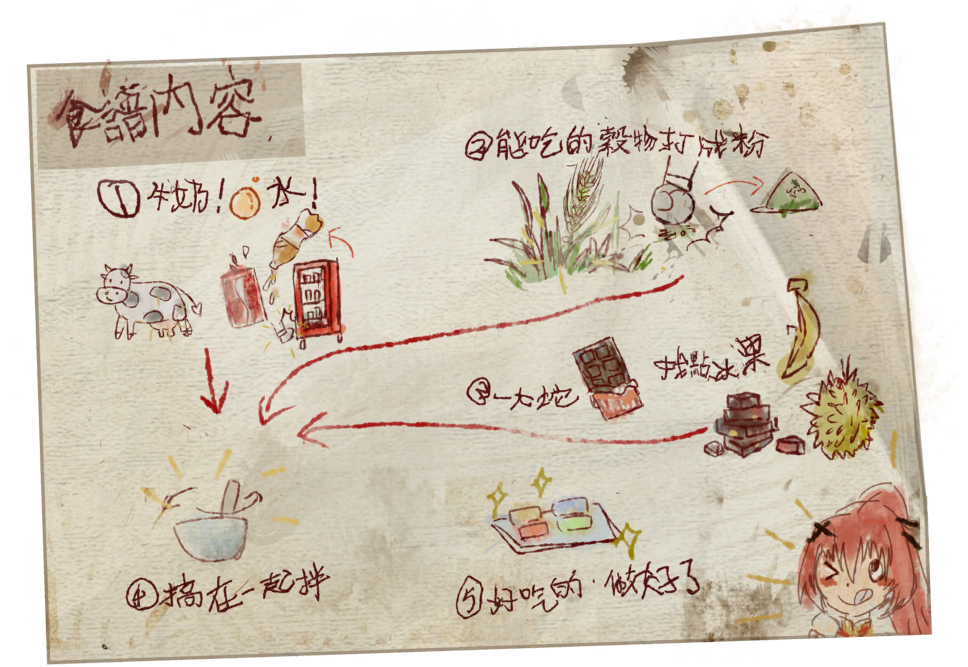 食譜內容
①牛奶!水!
②能吃的穀物打成粉
③一大坨
找點水果
④搞在一起拌
⑤好吃的.做好了